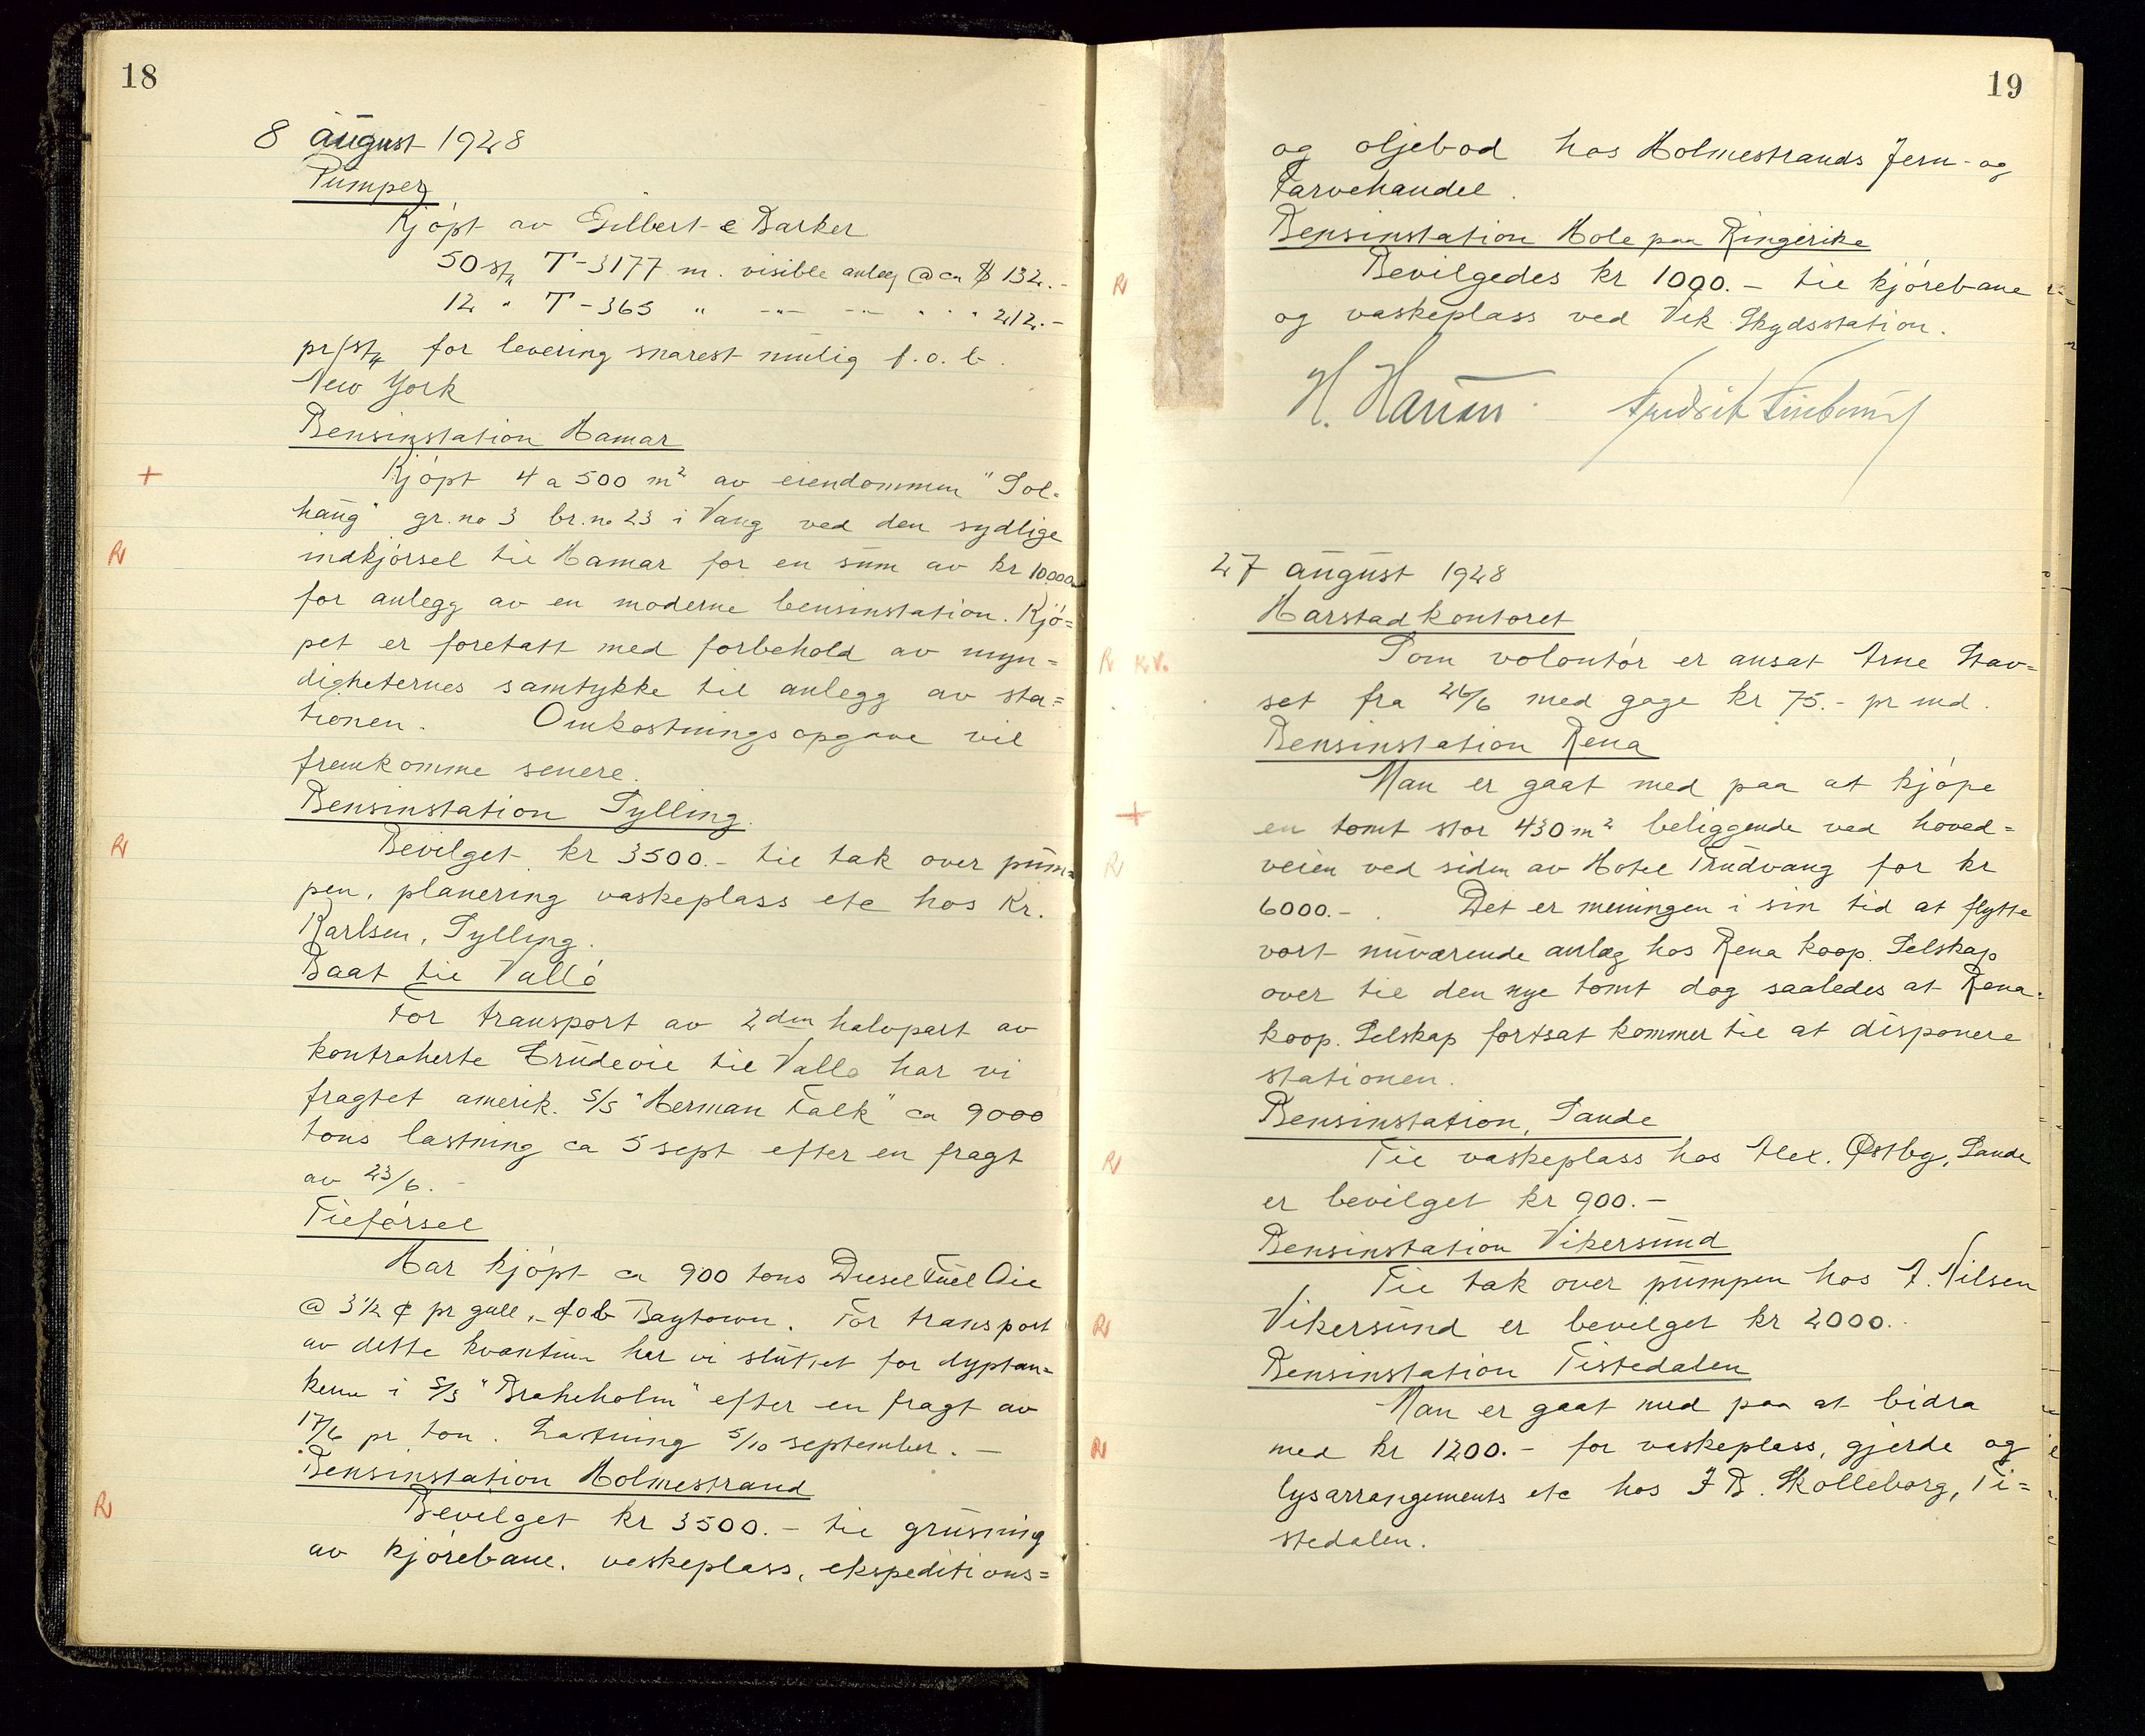 18
8 august 1928
Pumper
Kjøpt av Gilbert & Barker
50 stk T-3177 m. visible anlæg @ ca $ 132.-
12 " T-365 " -"- -"- " " " 212.-
pr/stk for levering snarest mulig f.o.b.
New York
Bensinstation Hamar
+ Kjøpt 4 a 500 m² av eiendommen "Sol=
haug" gr.no 3 br.no 23 i Vang ved den sydlige
R indkjørsel til Hamar for en sum av kr 10000
for anlegg av en moderne bensinstation. Kjø=
pet er foretatt med forbehold av myn=
digheternes samtykke til anlegg av sta=
tionen. Omkostningsopgave vil
fremkomme senere.
Bensinstation Sylling
R Bevilget kr 3500.- til tak over pum=
pen, planering vaskeplass etc hos Kr.
Karlsen, Sylling.
Baat til Vallø
For transport av 2den halvpart av
kontraherte Crudeoil til Vallø har vi
fragtet amerik. S/S "Herman Falk" ca 9000
tons lastning ca 5 sept efter en fragt
av 23/6.-
Tilførsel
Har kjøpt ca 900 tons Diesel Fuel Oil
@ 3 1/2 ¢ pr gall., fob Baytown. For transport
av dette kvantum har vi sluttet for dyptan=
kerne i S/S "Braheholm" efter en fragt av
17/6 pr ton. Lastning 5/10 september.-
Bensinstation Holmestrand
R Bevilget kr 3500.- til grusning
av kjørebane, vaskeplass, ekspeditions=
19
og oljebod hos Holmestrands Jern- og
Farvehandel.
Bensinstation Hole paa Ringerike
R Bevilgedes kr 1000.- til kjørebane
og vaskeplass ved Vik Skydsstation.
H. Hansen
27 august 1928
Harstadkontoret
R K.V. Som volontør er ansat Arne Stav=
set fra 26/6 med gage kr 75.- pr md.
Bensinstation Rena
Man er gaat med paa at kjøpe
+ en tomt stor 430 m² beliggende ved hoved=
R veien ved siden av Hotel Trudvang for kr
6000.-. Det er meningen i sin tid at flytte
vort nuværende anlæg hos Rena koop. Selskap
over til den nye tomt dog saaledes at Rena
koop. Selskap fortsat kommer til at disponere
stationen.
Bensinstation, Sande
R Til vaskeplass hos Alex. Østby, Sande
er bevilget kr 900.-
Bensinstation Vikersund
Til tak over pumpen hos A. Nilsen
R Vikersund er bevilget kr 2000.-
Bensinstation Tistedalen
Man er gaat med paa at bidra
R med kr 1200.- for vaskeplass, gjerde og
lysarrangements etc hos J B. Skolleborg, Ti=
stedalen.